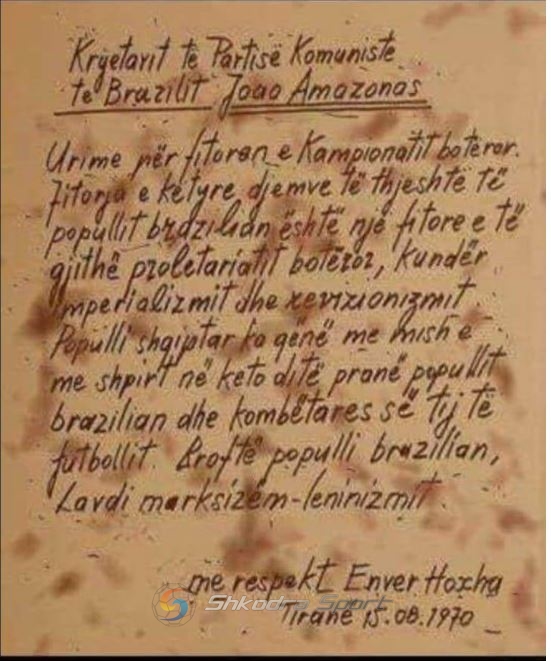 Kryetarit të Partisë Komuniste
të Brazilit Joao Amazonas
Urime për fitoren e Kampionatit botëror.
Fitorja e këtyre djemve të thjeshtë të
popullit brazilian është një fitore e të
gjithë proletariatit botëror, kundër
imperializmit dhe revizionizmit.
Populli shqiptar ka qënë me mish e
me shpirt në keto ditë pranë popullit
brazilian dhe kombëtares së tij të
futbollit. Rroftë populli brazilian,
Lavdi marksizëm-leninizmit.
me respekt Enver Hoxha
Shkodra Sport
Tiranë 15.08.1970